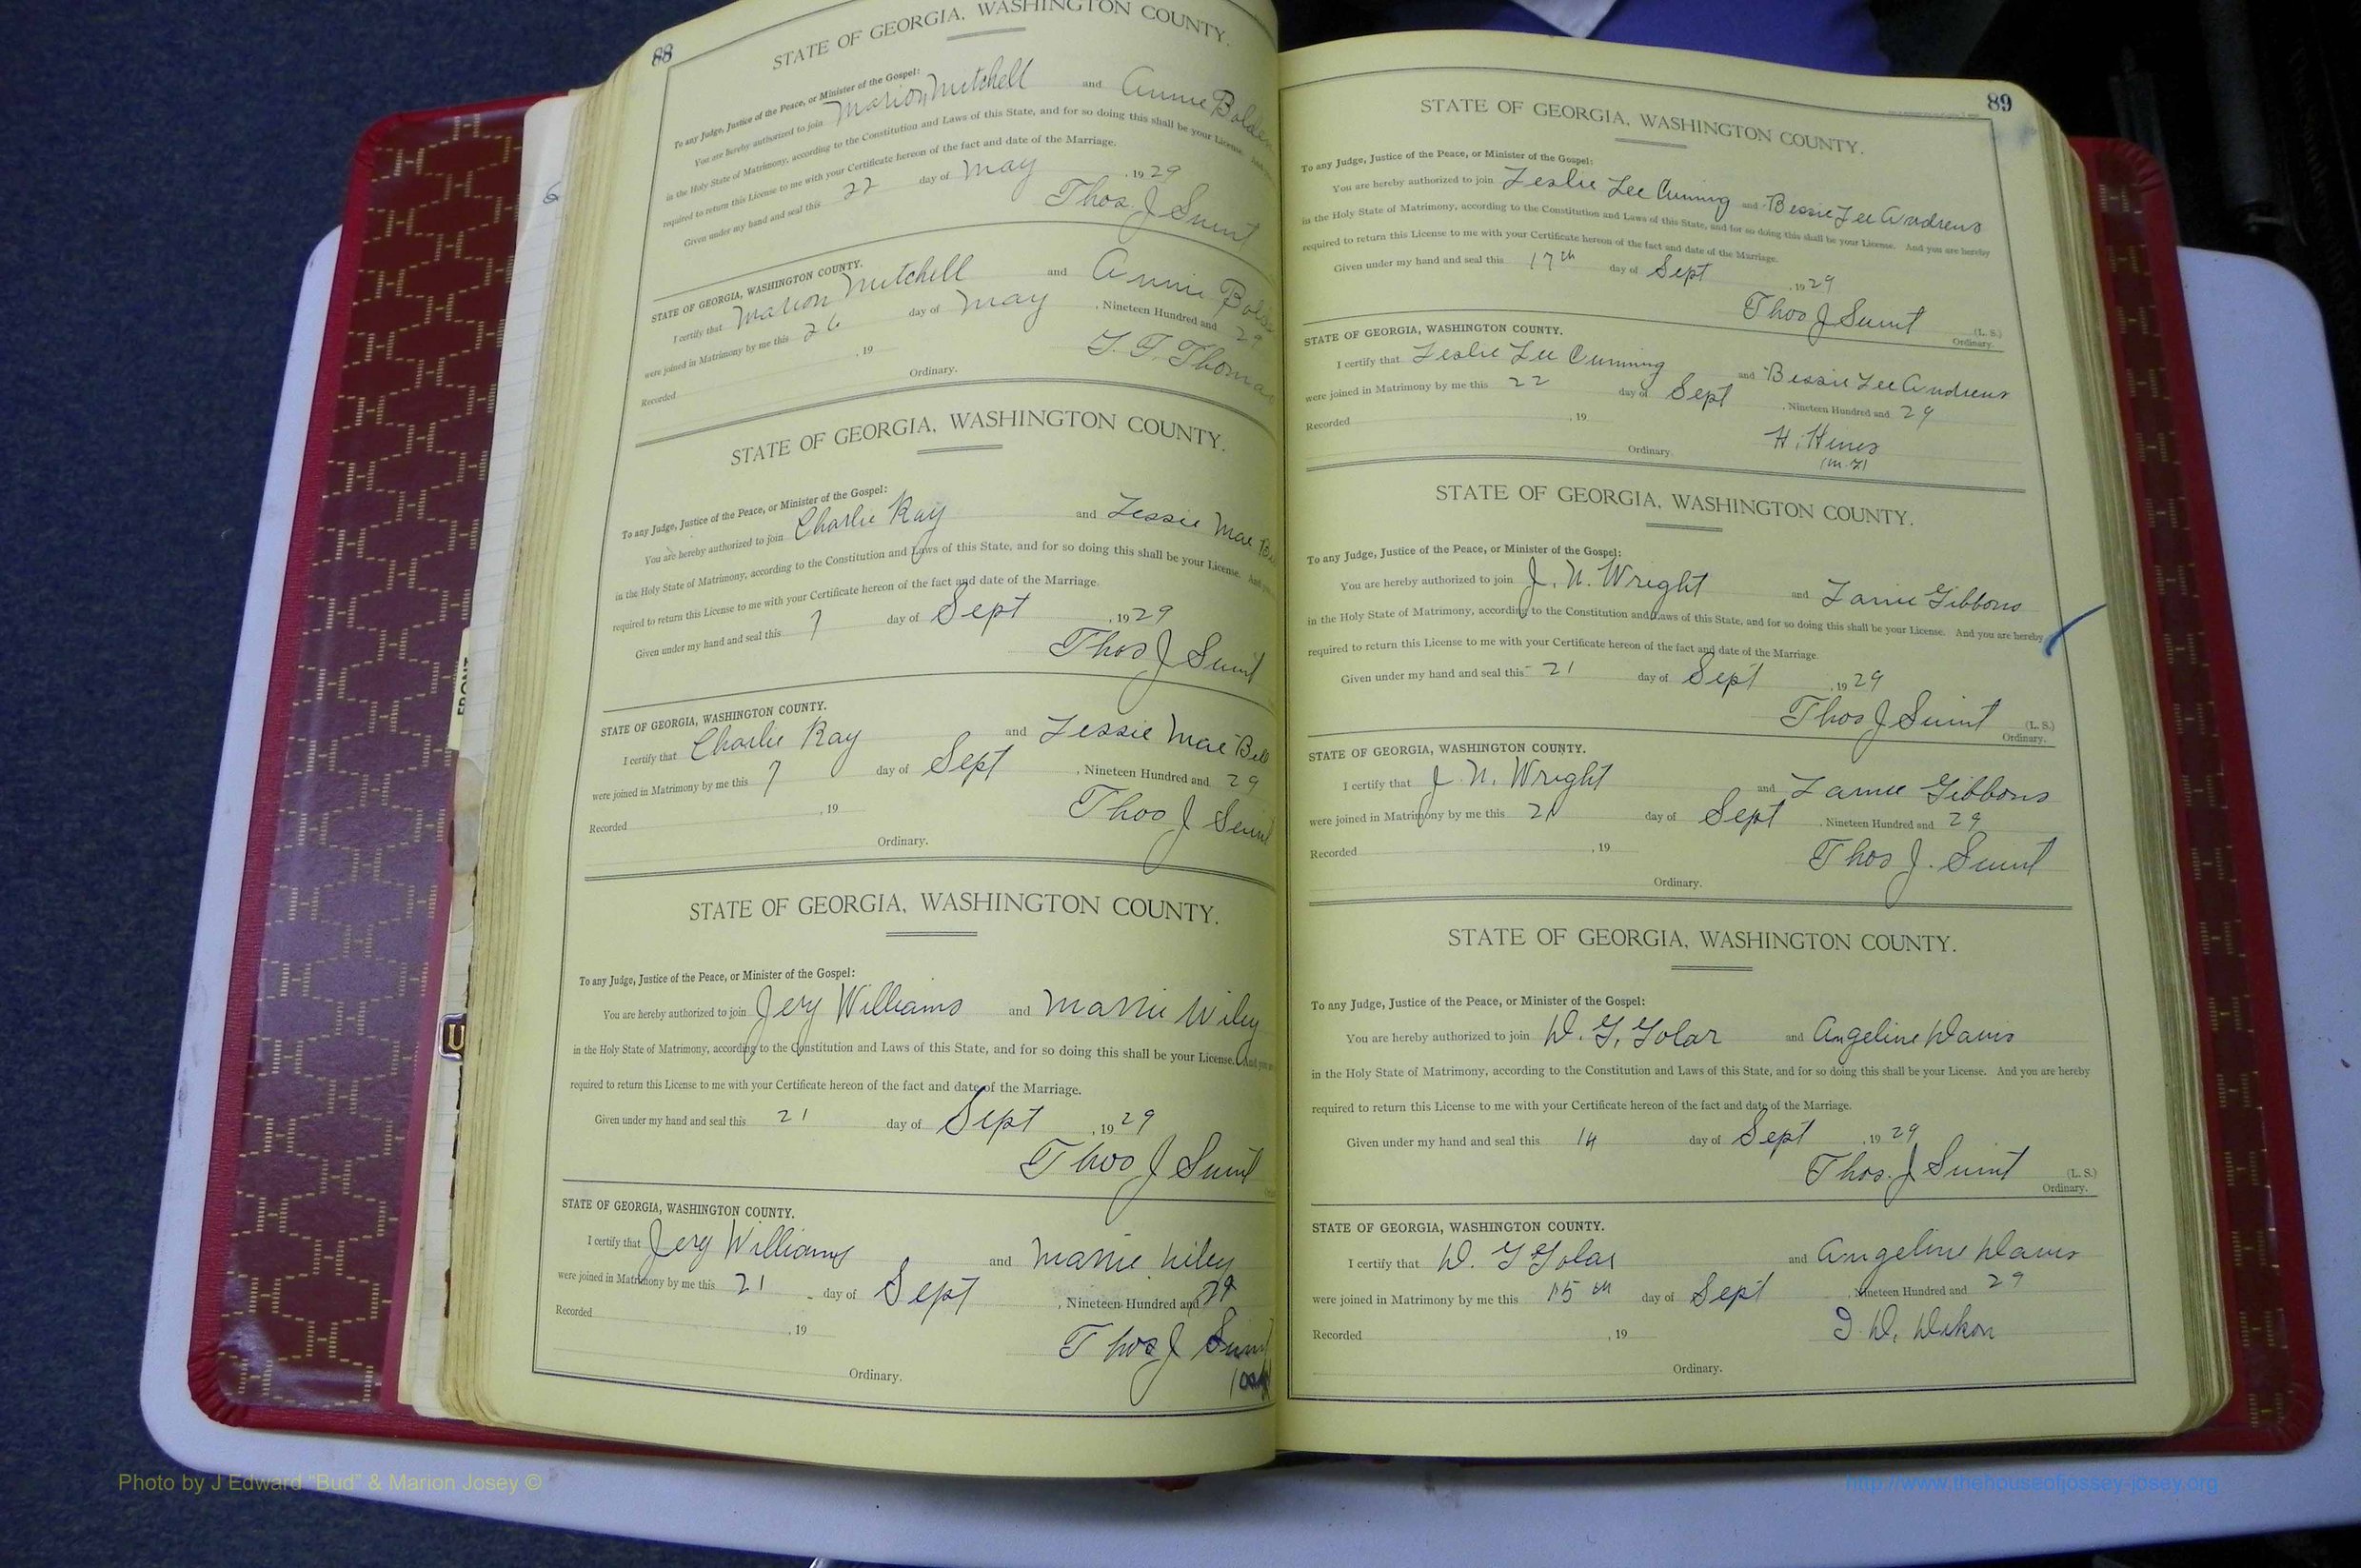 88
STATE OF GEORGIA, WASHINGTON COUNTY.
To any Judge, Justice of the Peace, or Minister of the Gospel:
You are hereby authorized to join Marion Mitchell and Annie
in the Holy State of Matrimony, according to the Constitution and Laws of this State, and for so doing this shall be your License.
required to return this License to me with your Certificate hereon of the fact and date of the Marriage.
Given under my hand and seal this 22 day of May , 1929
Thos. J
STATE OF GEORGIA, WASHINGTON COUNTY.
I certify that Marion Mitchell and Annie
were joined in Matrimony by me this 26 day of May , Nineteen Hundred and 29
Recorded , 19
Ordinary.
STATE OF GEORGIA, WASHINGTON COUNTY.
To any Judge, Justice of the Peace, or Minister of the Gospel:
You are hereby authorized to join Charlie Ray and Lessie Mae
in the Holy State of Matrimony, according to the Constitution and Laws of this State, and for so doing this shall be your License.
required to return this License to me with your Certificate hereon of the fact and date of the Marriage.
Given under my hand and seal this 7 day of Sept , 1929
Thos J
STATE OF GEORGIA, WASHINGTON COUNTY.
I certify that Charlie Ray and Lessie Mae
were joined in Matrimony by me this 7 day of Sept , Nineteen Hundred and 29
Thos J
Recorded , 19
Ordinary.
STATE OF GEORGIA, WASHINGTON COUNTY.
To any Judge, Justice of the Peace, or Minister of the Gospel:
You are hereby authorized to join Jery Williams and Wiley
in the Holy State of Matrimony, according to the Constitution and Laws of this State, and for so doing this shall be your License.
required to return this License to me with your Certificate hereon of the fact and date of the Marriage.
Given under my hand and seal this 21 day of Sept , 1929
Thos J
STATE OF GEORGIA, WASHINGTON COUNTY.
I certify that Jery Williams and Wiley
were joined in Matrimony by me this 21 day of Sept , Nineteen Hundred and 29
Recorded , 19
Thos J
Ordinary.
89
STATE OF GEORGIA, WASHINGTON COUNTY.
To any Judge, Justice of the Peace, or Minister of the Gospel:
You are hereby authorized to join Leslie Lee Cuming and Bessie Lee Andrews
in the Holy State of Matrimony, according to the Constitution and Laws of this State, and for so doing this shall be your License. And you are hereby
required to return this License to me with your Certificate hereon of the fact and date of the Marriage.
Given under my hand and seal this 17th day of Sept , 1929
Thos J Swint (L. S.)
Ordinary.
STATE OF GEORGIA, WASHINGTON COUNTY.
I certify that Leslie Lee Cumming and Bessie Lee Andrews
were joined in Matrimony by me this 22 day of Sept , Nineteen Hundred and 29
Recorded , 19
H. Hines
Ordinary.
STATE OF GEORGIA, WASHINGTON COUNTY.
To any Judge, Justice of the Peace, or Minister of the Gospel:
You are hereby authorized to join J. N. Wright and Gibbons
in the Holy State of Matrimony, according to the Constitution and Laws of this State, and for so doing this shall be your License. And you are hereby
required to return this License to me with your Certificate hereon of the fact and date of the Marriage.
Given under my hand and seal this 21 day of Sept , 1929
Thos J Swint (L. S.)
Ordinary.
STATE OF GEORGIA, WASHINGTON COUNTY.
I certify that J. N. Wright and Gibbons
were joined in Matrimony by me this 21 day of Sept , Nineteen Hundred and 29
Recorded , 19
Thos J. Swint
Ordinary.
STATE OF GEORGIA, WASHINGTON COUNTY.
To any Judge, Justice of the Peace, or Minister of the Gospel:
You are hereby authorized to join D. G. Golar and Angeline Davis
in the Holy State of Matrimony, according to the Constitution and Laws of this State, and for so doing this shall be your License. And you are hereby
required to return this License to me with your Certificate hereon of the fact and date of the Marriage.
Given under my hand and seal this 14 day of Sept , 1929
Thos. J Swint (L. S.)
Ordinary.
STATE OF GEORGIA, WASHINGTON COUNTY.
I certify that D. G Golar and Angeline Davis
were joined in Matrimony by me this 15th day of Sept , Nineteen Hundred and 29
Recorded , 19
Ordinary.
Photo by J Edward "Bud" & Marion Josey ©
http://www.thehouseofjossey-josey.org